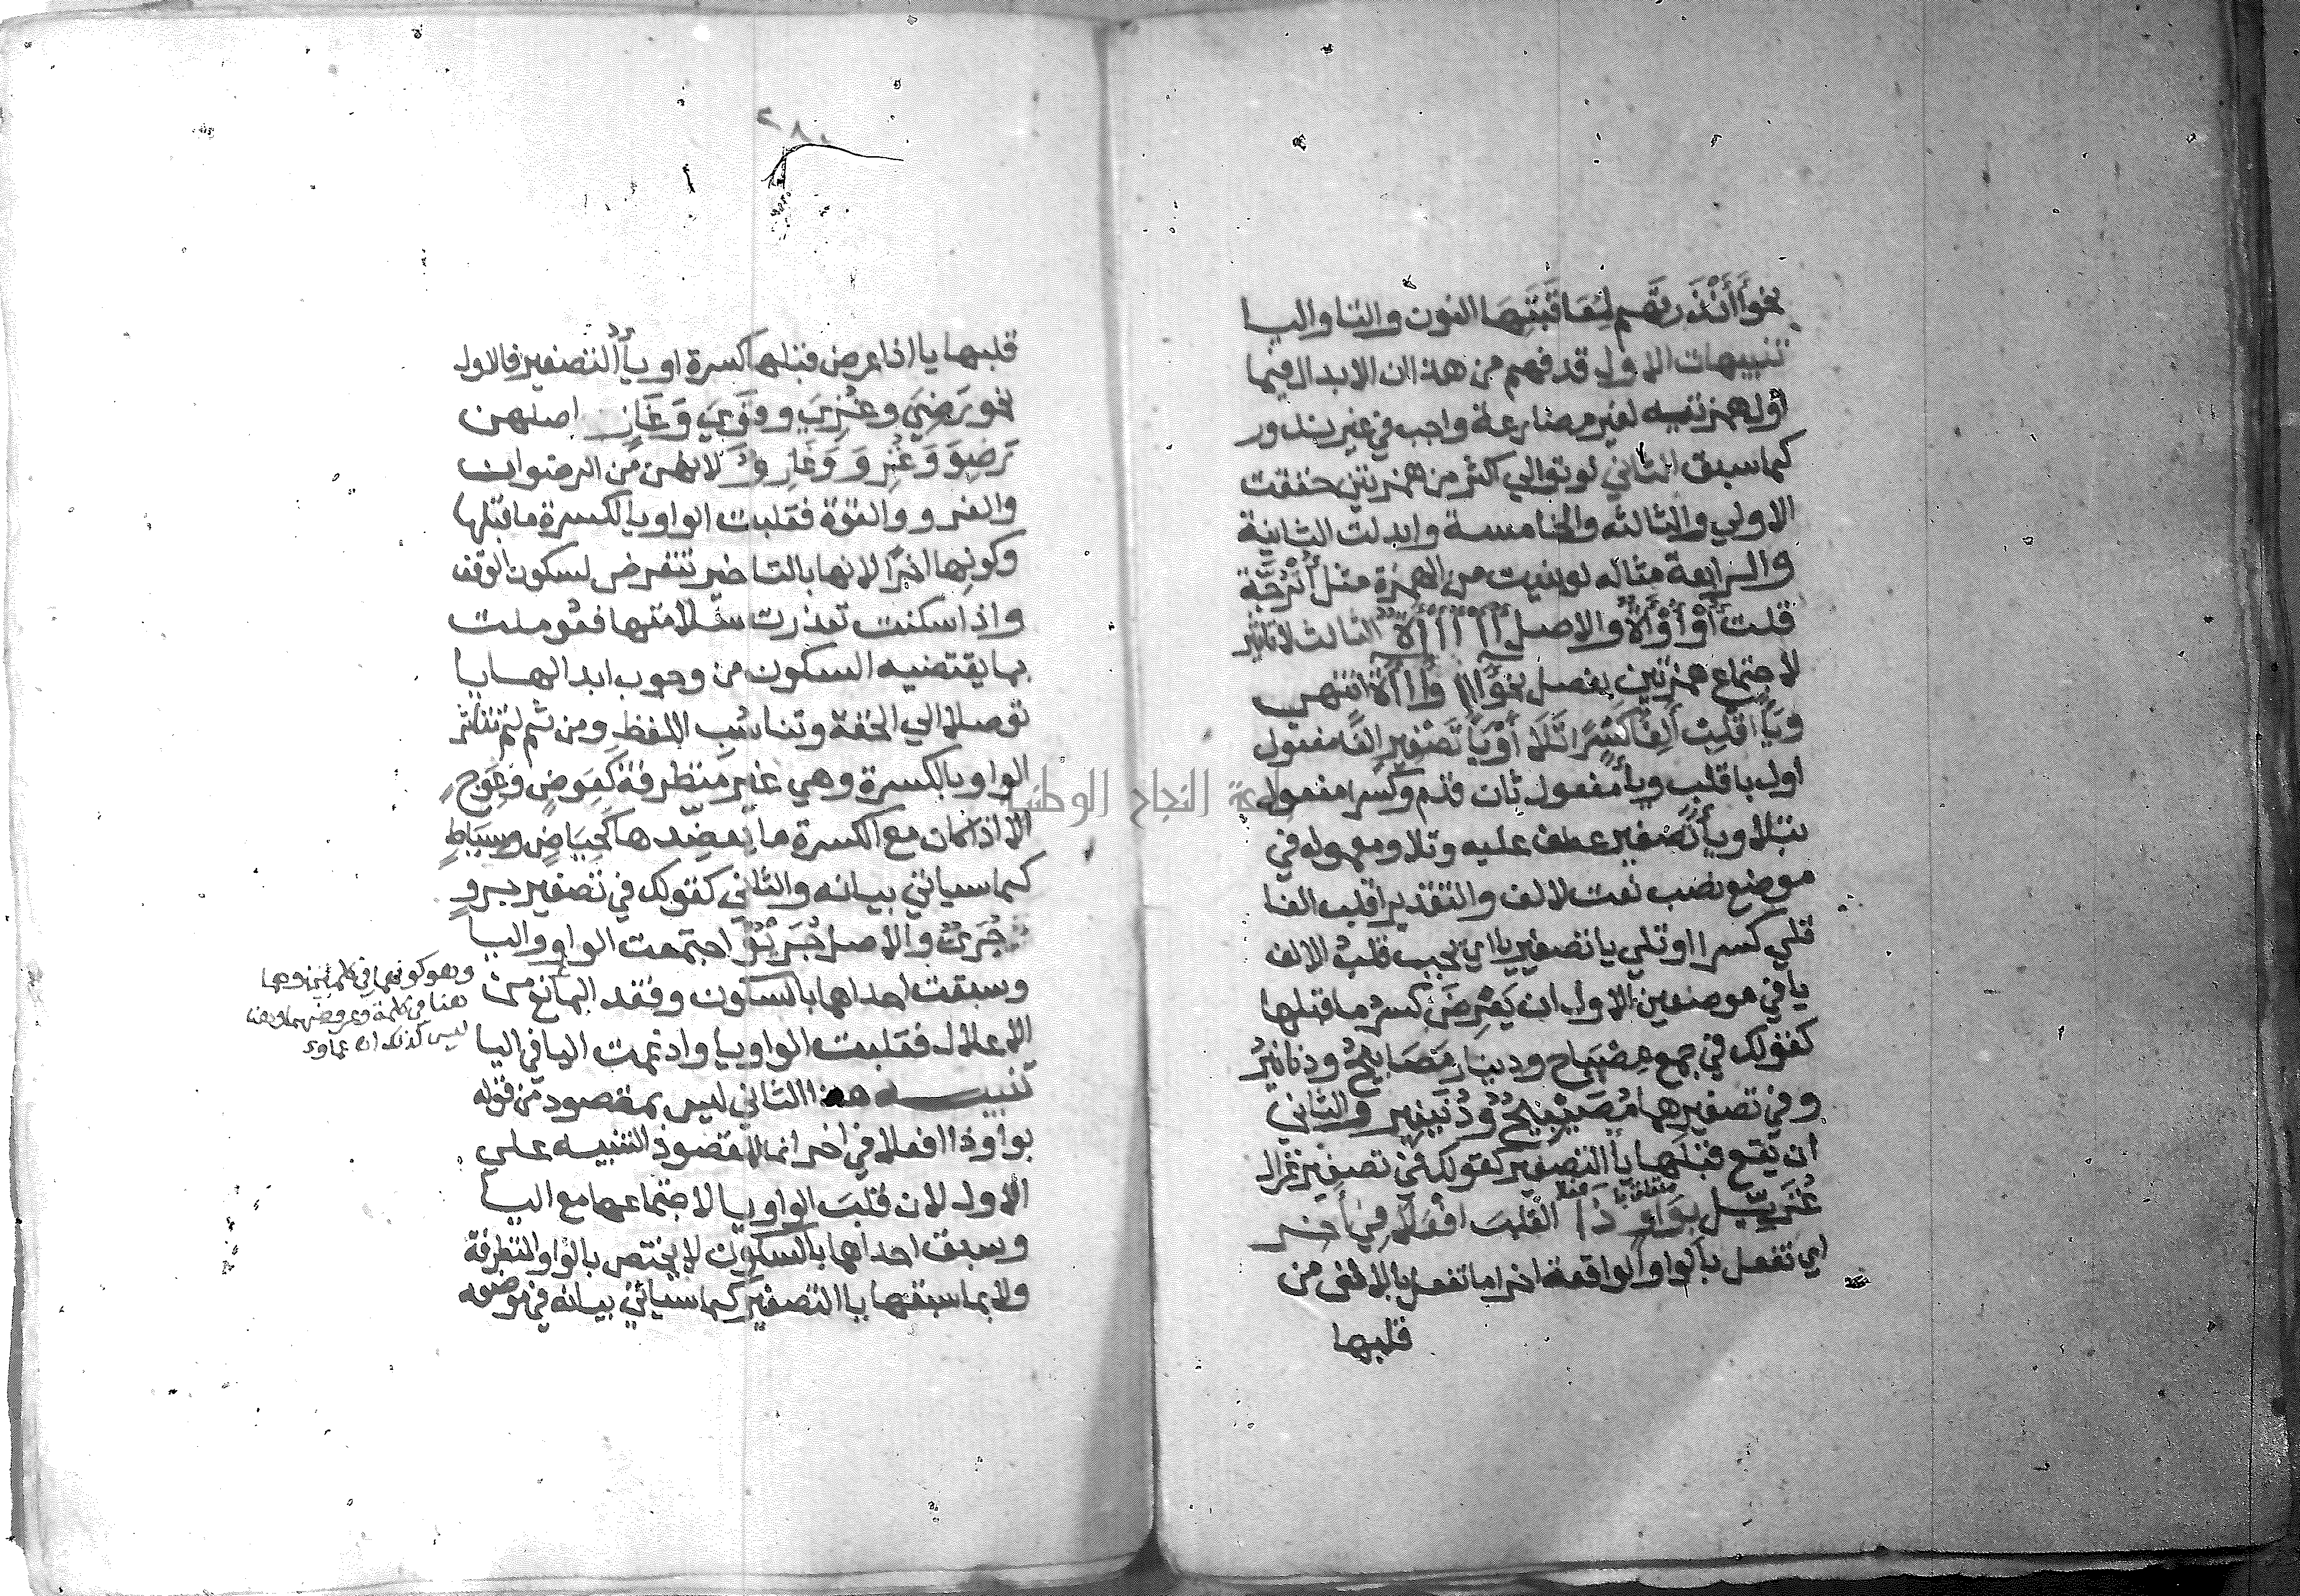 نحو أَأَنْذَرتَهم لِمُعَاقَبَتِهَا النون والتا واليا
تنبيهات الاول قد فهم من هذا ان الابدال فيما
أولى همزتيه لغير مضارعة واجب في غير ندور
كما سبق الثاني لو توالي اكثر من همزتين حققت
الاولي والثالثة والخامسة وابدلت الثانية
والرابعة مثاله لو بنيت من الهمزة مثل أُتْرُجَّة
قلت والاصل الثالث لا تاثير
لاجتماع همزتين بفصل نحو انتهى
وَيَاً اقْلِبْ أَلِفًا كَسْرًا تَلَا أَوْ يَاءَ تَصْغِيرٍ الفا مفعول
اول باقلب وياً مفعول ثان قدم وكسرا مفعول
بتلا وياً تصغير عطف عليه وتلا ومعموله في
موضع نصب نعت لالف والتقدير اقلب الفا
تلي كسرا او تلي يا تصغير يا اي يجب قلب الالف
يا في موضعين الاول ان يَعْرِضَ كسر ما قبلها
كقولك في جمع مِصْبَاح ودينار مَصَابِيحُ ودنانيرُ
وفي تصغيرهما مُصَيْبِيحٌ ودُنَيْنِير والثاني
ان يقع قبلها ياً التصغير كقولك في تصغير غزال
غُزَيِّل بِوَاوٍ ذا القلبَ افْعَلَا فِي أخر
اي تفعل بالواو الواقعة اخرا ما تفعل بالالف من
قلبها
٢٨٠
قلبها يا اذا عرض قبلها كسرة او ياً التصغير فالاول
نحو رَضِيَ وغُزِيَ وقَوِيَ وَغَازٍ اصلهن
رَضِوَ وَغُزِوَ وَغَازِوٌ لانهن من الرضوان
والغزو والقوة فقلبت الواو يا لكسرة ما قبلها
وكونها اخرًا لانها بالتاخير تتعرض لسكون الوقف
واذا سكنت تعذرت سلامتها فعوملت
بما يقتضيه السكون من وجوب ابدالها يا
توصلا الي الخفة وتناسُبِ اللفظِ ومن ثم لم تتاثر
الواو بالكسرة وهي غير متطرفة كَعِوَضٍ وعِوَجٍ
الا اذا كان مع الكسرة ما يعضدها كَحِيَاضٍ وسِيَاطٍ
كما سياتي بيانه والثاني كقولك في تصغير جروٍ
جُرَيٌّ والاصل جُرَيْوٌ اجتمعت الواو واليا
وسبقت احداهما بالسكون وفقد المانع من
الاعلال فقلبت الواو يا وادغمت اليا في اليا
وهو كونهما في كلمتين وهما
هنا في كلمة وعروضهما وهنا
ليس كذلك
تنبيه هذا الثاني ليس بمقصود من قوله
بواو ذا افعلا في اخر انما المقصود التنبيه علي
الاول لان قَلْبَ الواو يا لاجتماعها مع اليا
وسبق احداهما بالسكون لا يختص بالواو المتطرفة
ولا بما سبقها يا التصغير كما سياتي بيانه في موضعه
جامعة النجاح الوطنية